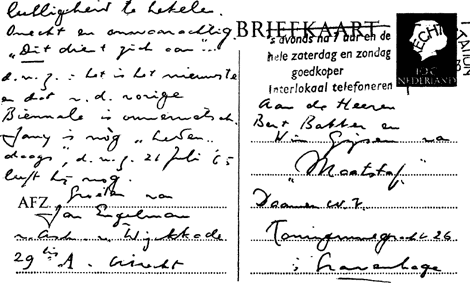 lulligheid te hekelen.
Onecht en onwaarachtig
"Dit dient zich aan"
d.w.z.: het is het nieuwste
en dat v.d. vorige
Biennale is onwerwelijk.
Jany is nog "heden
daags", d.w.z. 21 juli '65
lijft hij nog.
Groeten van
AFZ. Jan Engelman
v. Asch v. Wijckkade
29 bis A. Utrecht
BRIEFKAART
's avonds na 7 uur en de
hele zaterdag en zondag
goedkoper
interlokaal telefoneren
NEDERLAND
Aan de Heeren
Bert Bakker en
Wim Gijsen van
"Maatstaf"
Daamen N.V.
Koninginnegracht 26
's Gravenhage